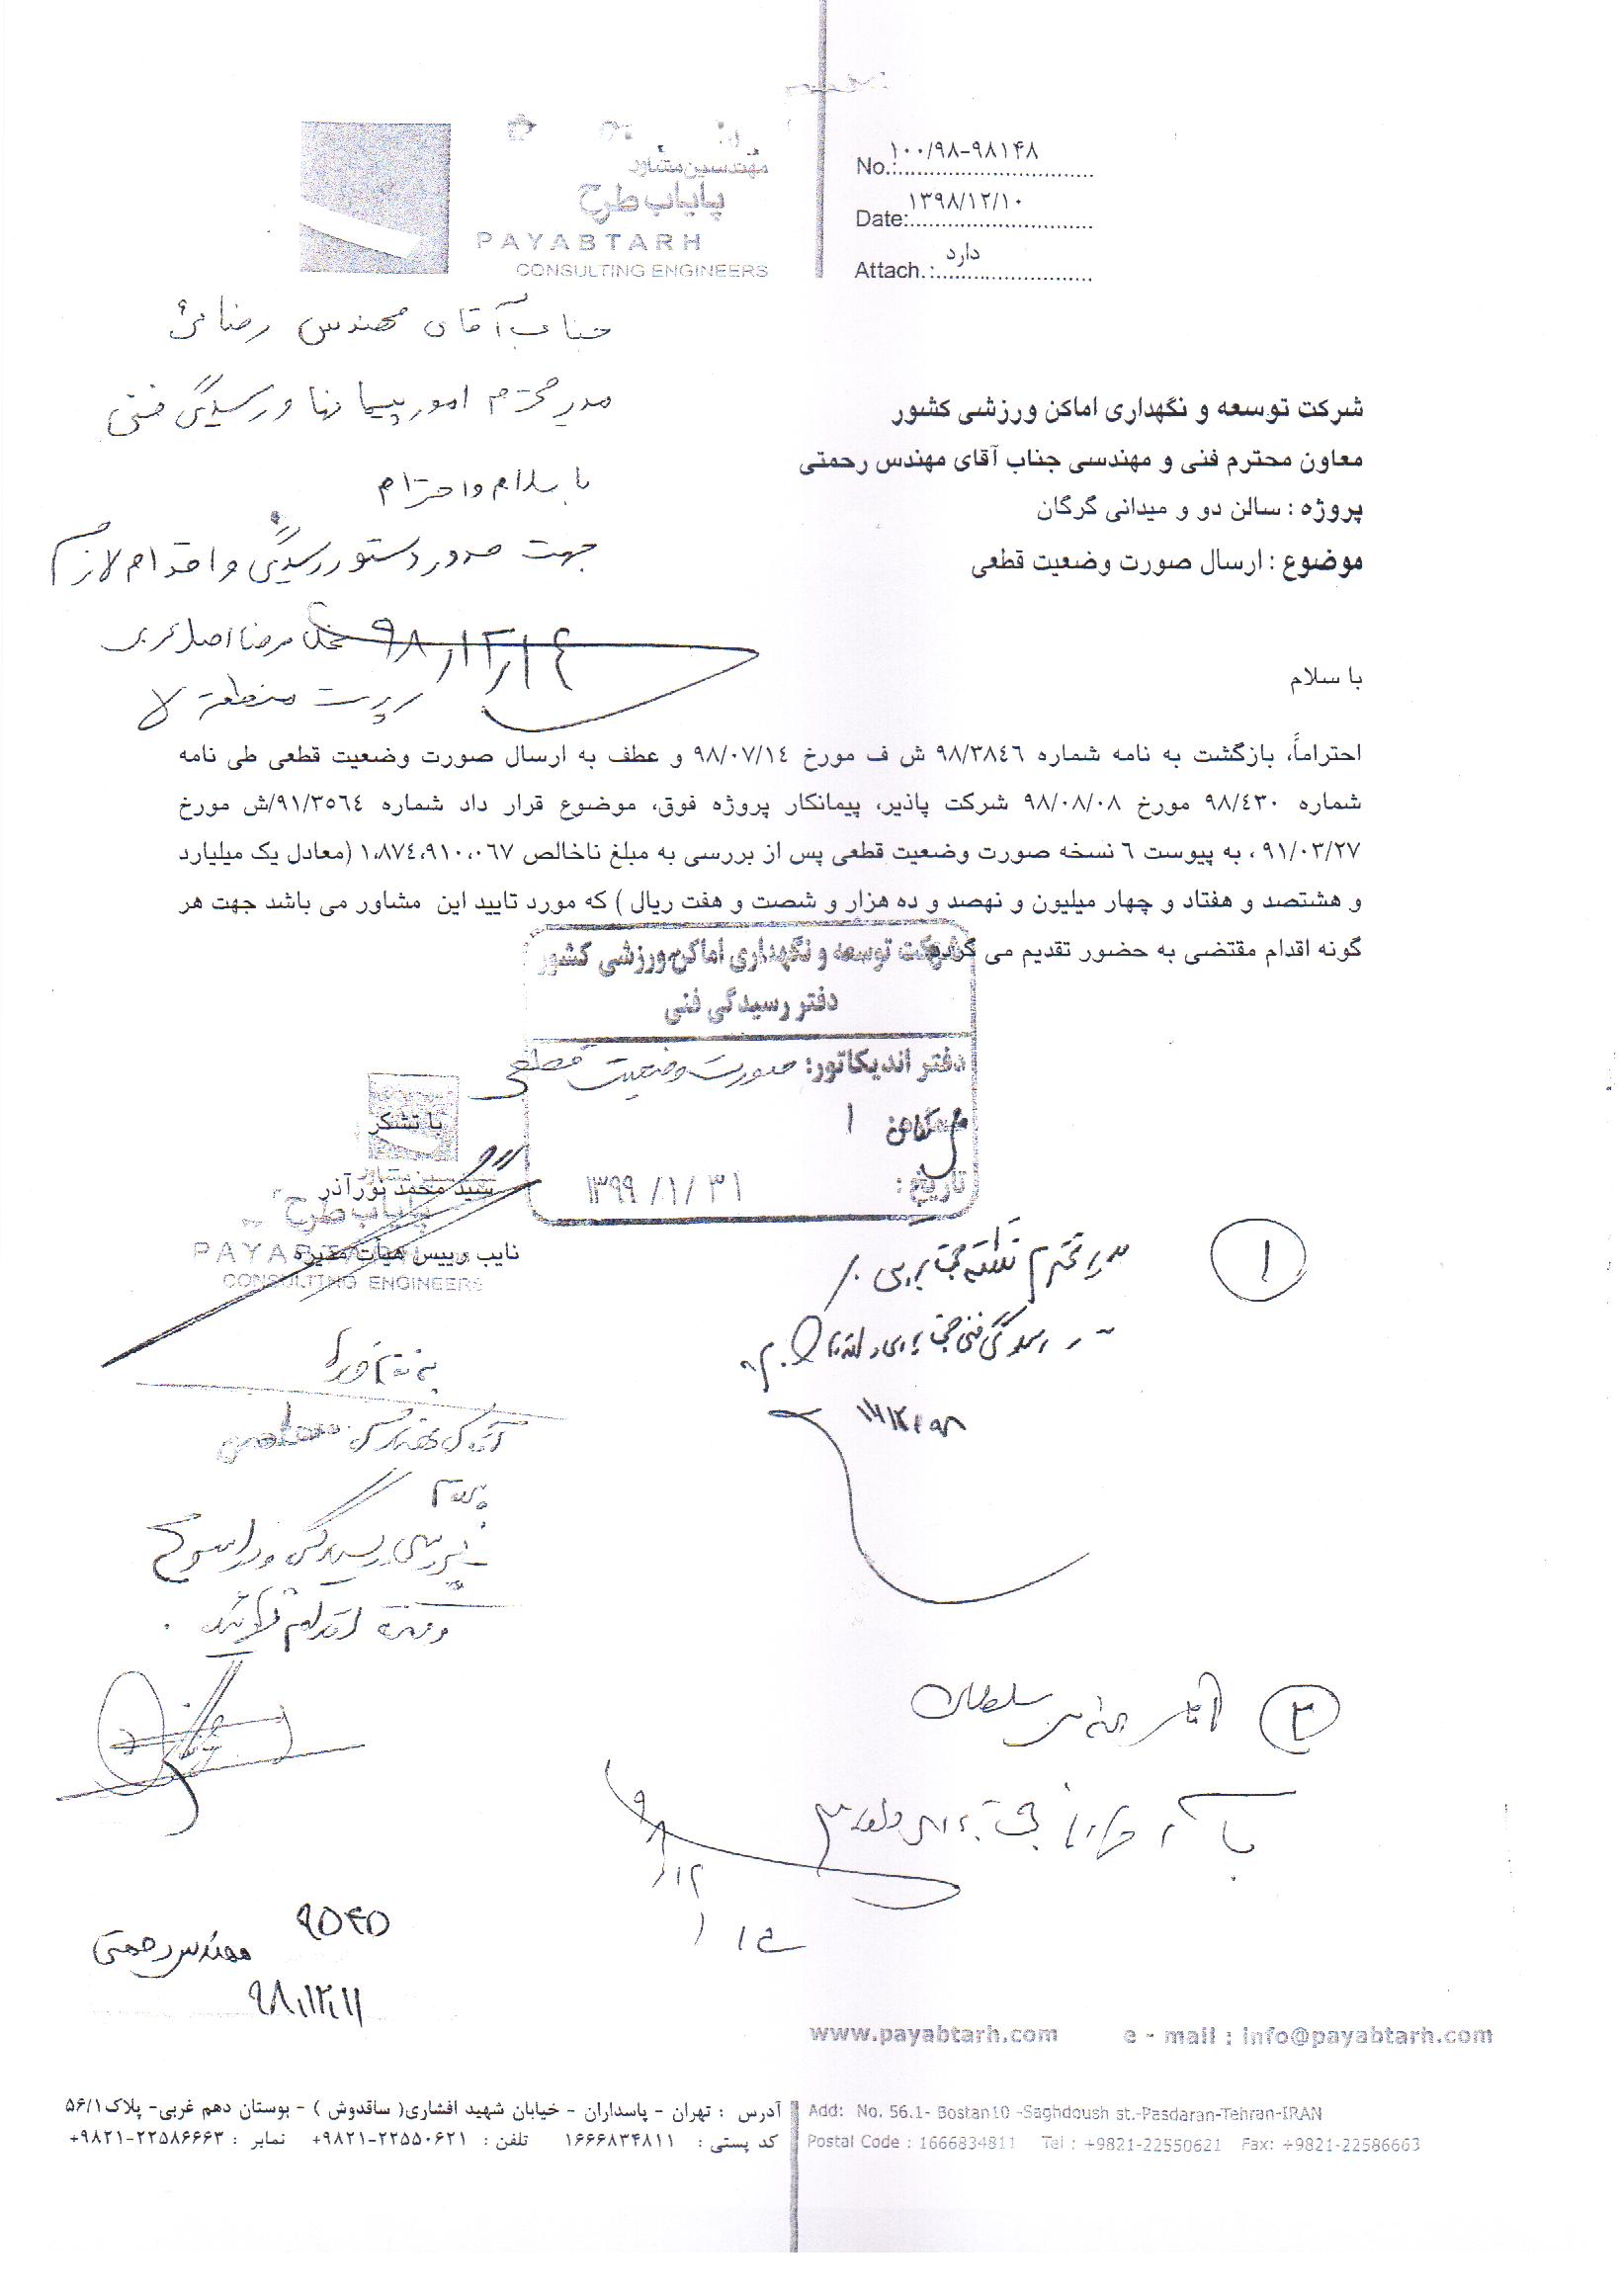 مهندسین مشاور
پایاب طرح
PAYABTARH
CONSULTING ENGINEERS
No.: ۱۰۰/۹۸-۹۸۱۴۸
Date: ۱۳۹۸/۱۲/۱۰
Attach.: دارد
جناب آقای مهندس رضائی
مدیر محترم امور پیمانها و رسیدگی فنی
با سلام و احترام
جهت صدور دستور رسیدگی و اقدام لازم
۹۸/۱۲/۱۴
سرپرست منطقه ۷
شرکت توسعه و نگهداری اماکن ورزشی کشور
معاون محترم فنی و مهندسی جناب آقای مهندس رحمتی
پروژه : سالن دو و میدانی گرگان
موضوع : ارسال صورت وضعیت قطعی
با سلام
احتراماً، بازگشت به نامه شماره ۹۸/۳۸٤٦ ش ف مورخ ۹۸/۰۷/۱٤ و عطف به ارسال صورت وضعیت قطعی طی نامه
شماره ۹۸/٤۳۰ مورخ ۹۸/۰۸/۰۸ شرکت پاذیر، پیمانکار پروژه فوق، موضوع قرار داد شماره ۹۱/۳٥٦٤/ش مورخ
۹۱/۰۳/۲۷ ، به پیوست ٦ نسخه صورت وضعیت قطعی پس از بررسی به مبلغ ناخالص ۱،۸۷٤،۹۱۰،۰٦۷ (معادل یک میلیارد
و هشتصد و هفتاد و چهار میلیون و نهصد و ده هزار و شصت و هفت ریال ) که مورد تایید این مشاور می باشد جهت هر
گونه اقدام مقتضی به حضور تقدیم می گردد.
شرکت توسعه و نگهداری اماکن ورزشی کشور
دفتر رسیدگی فنی
دفتر اندیکاتور: صورت وضعیت قطعی
۱
تاریخ: ۱۳۹۹/۱/۳۱
با تشکر
سید محمد نورآذر
نایب رییس هیأت مدیره
مهندسین مشاور
پایاب طرح
PAYABTARH
CONSULTING ENGINEERS
۱
مدیر محترم منطقه جهت بررسی
به نام خدا
آقای مهندس
۲
۹۸/۱۲/۱۵
۹۵۴۵
مهندس رحمتی
۹۸/۱۲/۱۱
www.payabtarh.com e - mail : info@payabtarh.com
آدرس : تهران - پاسداران - خیابان شهید افشاری( ساقدوش ) - بوستان دهم غربی- پلاک۵۶/۱
کد پستی : ۱۶۶۶۸۳۴۸۱۱ تلفن : ۲۲۵۵۰۶۲۱-۹۸۲۱+ نمابر : ۲۲۵۸۶۶۶۳-۹۸۲۱+
Add: No. 56.1- Bostan10 -Saghdoush st.-Pasdaran-Tehran-IRAN
Postal Code : 1666834811 Tel : +9821-22550621 Fax: +9821-22586663